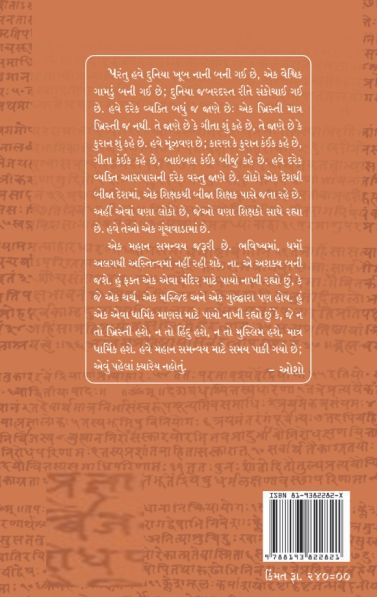 પરંતુ હવે દુનિયા ખૂબ નાની બની ગઈ છે, એક વૈશ્વિક
ગામડું બની ગઈ છે; દુનિયા જબરદસ્ત રીતે સંકોચાઈ ગઈ
છે. હવે દરેક વ્યક્તિ બધું જ જાણે છેઃ એક ખ્રિસ્તી માત્ર
ખ્રિસ્તી જ નથી. તે જાણે છે કે ગીતા શું કહે છે, તે જાણે છે કે
કુરાન શું કહે છે. હવે મૂંઝવણ છે; કારણ કે કુરાન કંઈક કહે છે,
ગીતા કંઈક કહે છે, બાઇબલ કંઈક બીજું કહે છે. હવે દરેક
વ્યક્તિ આસપાસની દરેક વસ્તુ જાણે છે. લોકો એક દેશથી
બીજા દેશમાં, એક શિક્ષકથી બીજા શિક્ષક પાસે જતા રહે છે.
અહીં એવાં ઘણા લોકો છે, જેઓ ઘણા શિક્ષકો સાથે રહ્યા
છે. હવે તેઓ એક ગૂંચવાડામાં છે.
એક મહાન સમન્વય જરૂરી છે. ભવિષ્યમાં, ધર્મો
અલગથી અસ્તિત્વમાં નહીં રહી શકે, ના. એ અશક્ય બની
જશે. હું ફક્ત એક એવા મંદિર માટે પાયો નાખી રહ્યો છું, કે
જે એક ચર્ચ, એક મસ્જિદ અને એક ગુરુદ્વારા પણ હોય. હું
એક એવા ધાર્મિક માણસ માટે પાયો નાખી રહ્યો છું કે, જે ન
તો ખ્રિસ્તી હશે, ન તો હિંદુ હશે, ન તો મુસ્લિમ હશે, માત્ર
ધાર્મિક હશે. હવે મહાન સમન્વય માટે સમય પાકી ગયો છે;
એવું પહેલાં ક્યારેય નહોતું.
– ઓશો
ISBN 81-9382282-X
9 788193 822821
કિંમત રૂા. ૨૪૦=૦૦